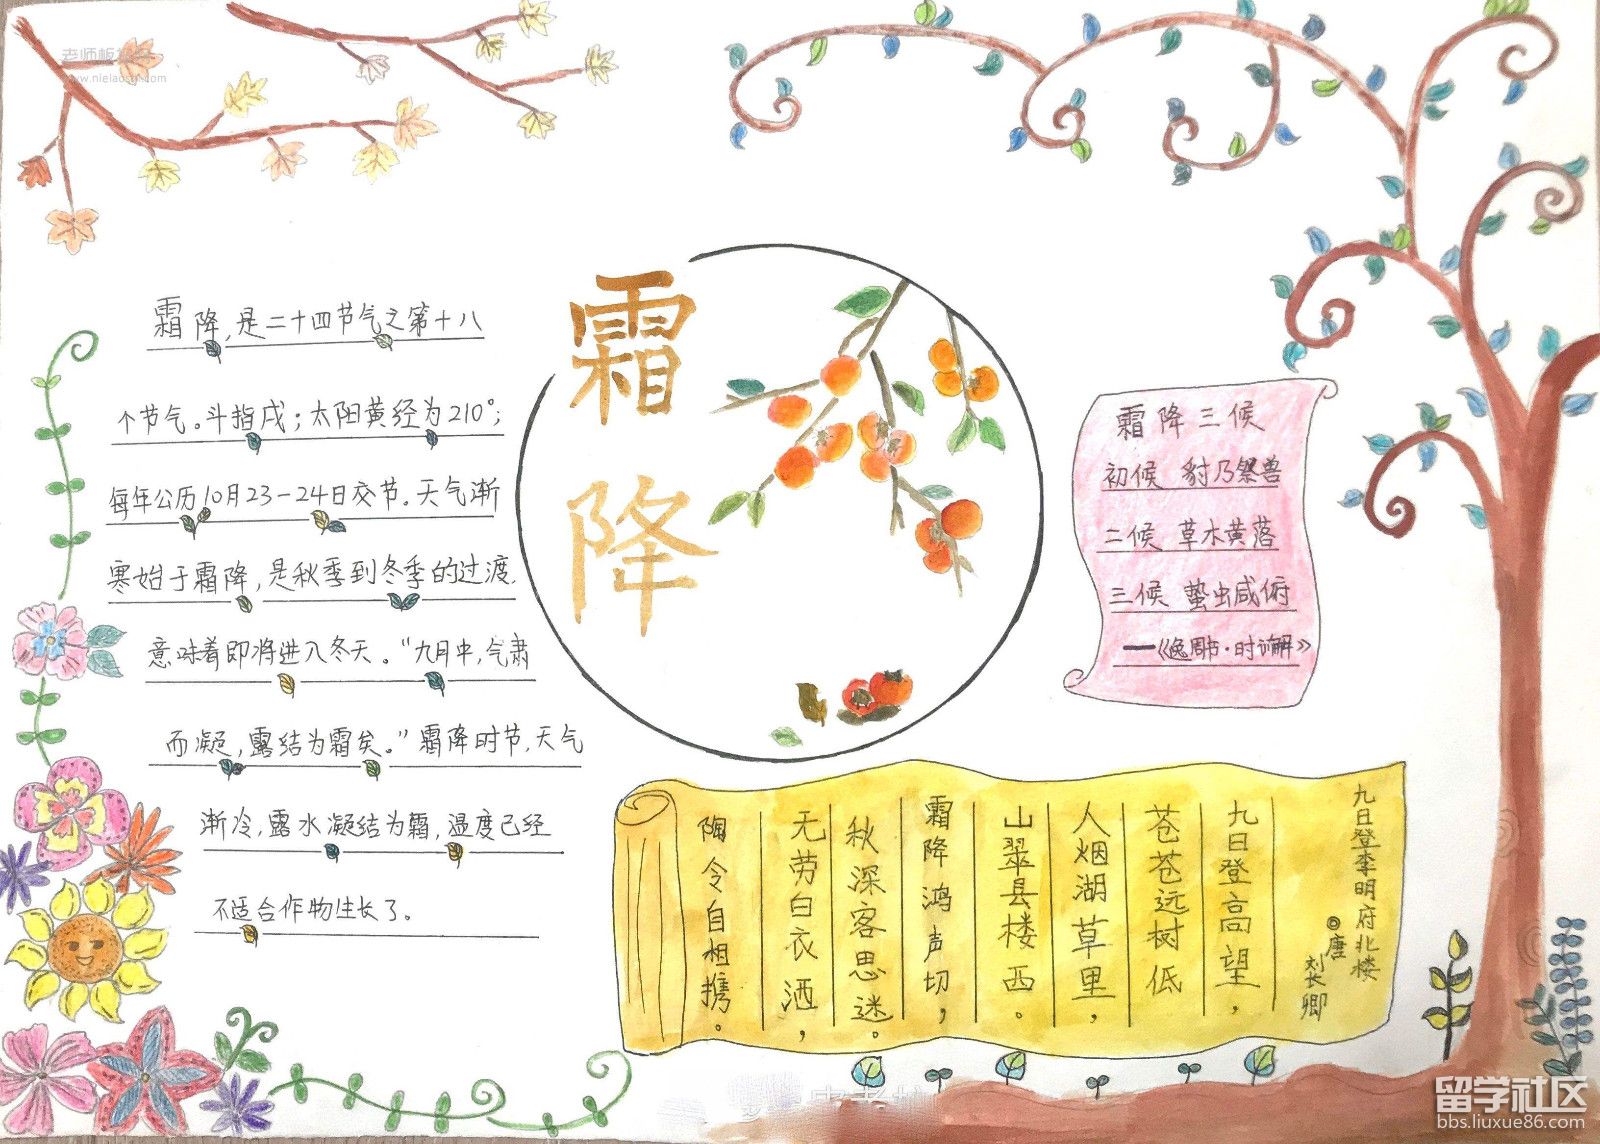 老师板报网
www.nielaoshi.com
霜降
霜降,是二十四节气之第十八
个节气。斗指戌;太阳黄经为210°;
每年公历10月23-24日交节。天气渐
寒始于霜降,是秋季到冬季的过渡,
意味着即将进入冬天。“九月中,气肃
而凝,露结为霜矣。”霜降时节,天气
渐冷,露水凝结为霜,温度已经
不适合作物生长了。
霜降三候
初候 豺乃祭兽
二候 草木黄落
三候 蛰虫咸俯
—《逸周书·时训解》
九日登李明府北楼
◎唐
刘长卿
九日登高望,
苍苍远树低
人烟湖草里,
山翠县楼西。
霜降鸿声切,
秋深客思迷。
无劳白衣酒,
陶令自相携。
留学社区
bbs.liuxue86.com